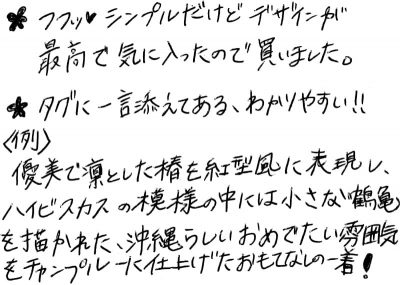 * フフッ♥シンプルだけどデザインが
最高で気に入ったので買いました。
* タグに一言添えてある、わかりやすい!!
〈例〉
優美で凛とした椿を紅型風に表現し、
ハイビスカスの模様の中には小さな鶴亀
を描かれた、沖縄らしいおめでたい雰囲気
をチャンプルーに仕上げたおもてなしの一着!